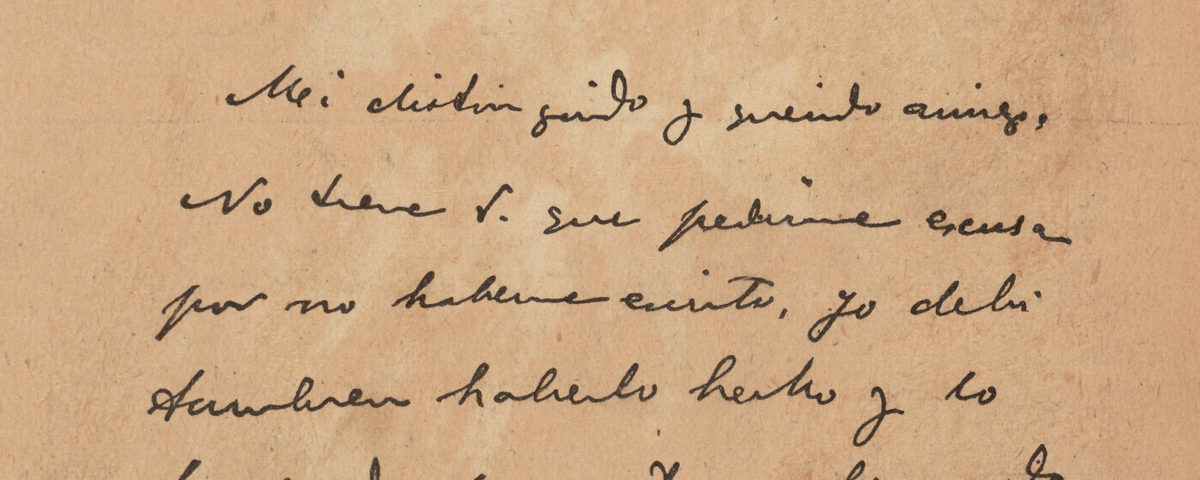 Mi distinguido y querido amigo,
No tiene V. que pedirme excusa
por no haberme escrito, yo debi
tambien haberlo hecho y lo